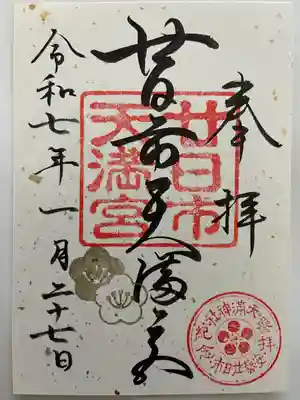 奉拝
廿日市天満宮
令和七年一月二十七日
廿日市
天満宮
天満神社
参拝
紀念
安芸廿日市